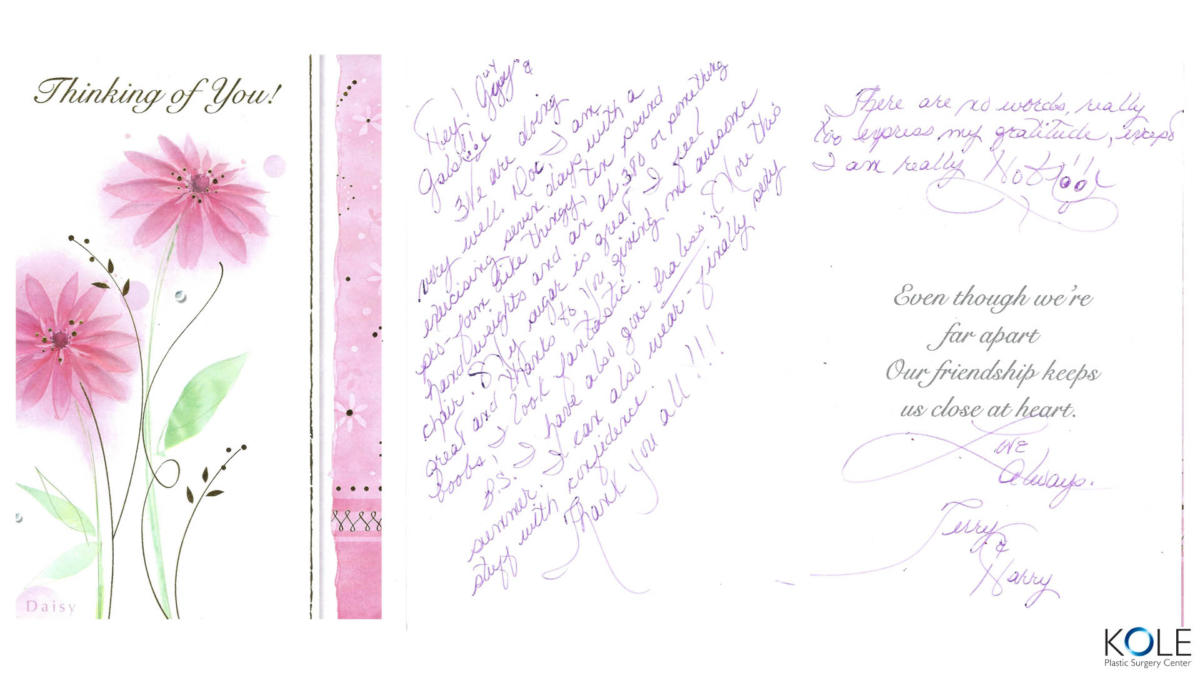 Thinking of You!
Daisy
Hey!
We are doing
very well. Doc I am
exercising seven days with a
like thingy, ten pound
handweights and an ab 380 or something
chair. My sugar is great I feel
great and thanks to you giving me awesome
boobs, I look fantastic.
P.S. I have also gone braless this
summer. I can also wear finally sexy
stuff with confidence.
Thank you all!!!
There are no words, really
too express my gratitude, except
I am really
Even though we're
far apart
Our friendship keeps
us close at heart.
Always.
Terry
&
Harry
KOLE
Plastic Surgery Center